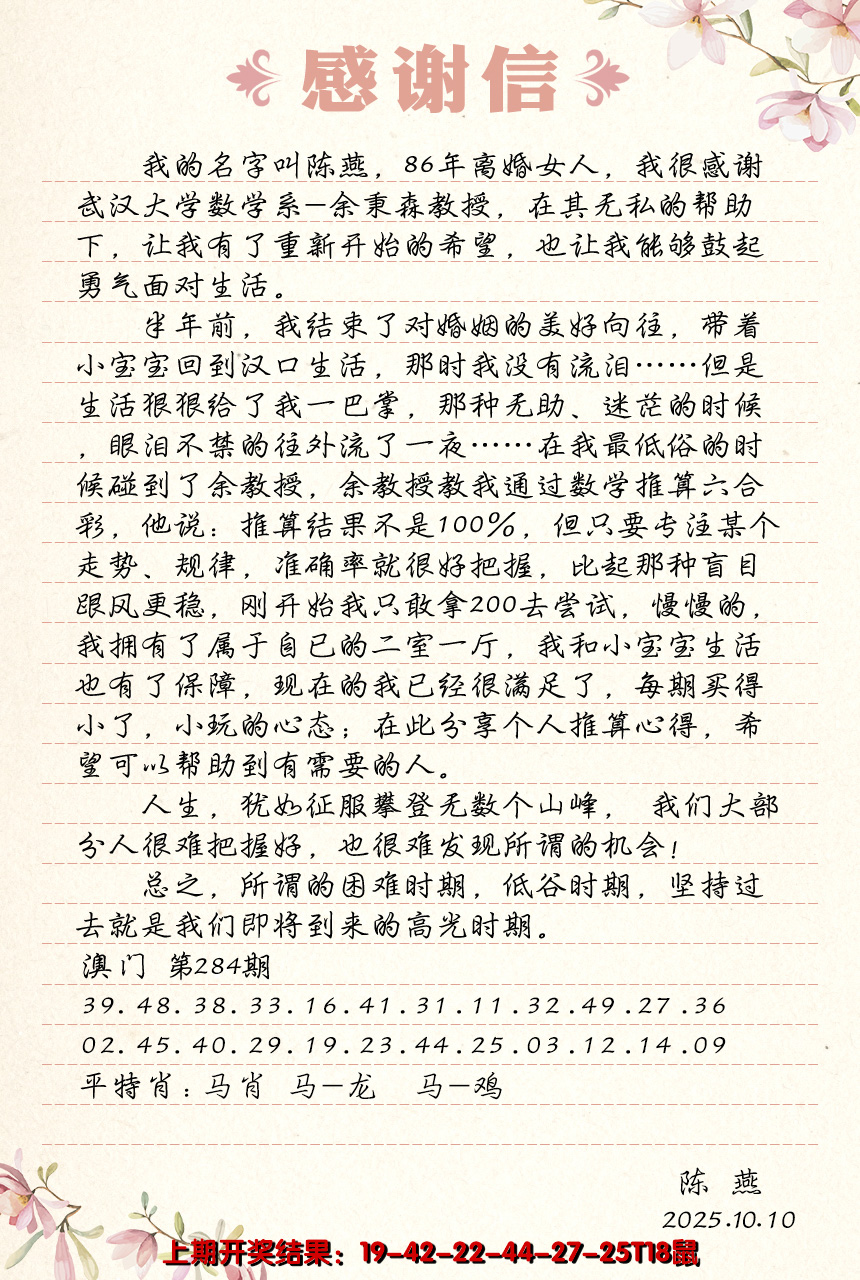 感谢信
我的名字叫陈燕，86年离婚女人，我很感谢
武汉大学数学系—余秉森教授，在其无私的帮助
下，让我有了重新开始的希望，也让我能够鼓起
勇气面对生活。
半年前，我结束了对婚姻的美好向往，带着
小宝宝回到汉口生活，那时我没有流泪……但是
生活狠狠给了我一巴掌，那种无助、迷茫的时候
，眼泪不禁的往外流了一夜……在我最低俗的时
候碰到了余教授，余教授教我通过数学推算六合
彩，他说：推算结果不是100%，但只要专注某个
走势、规律，准确率就很好把握，比起那种盲目
跟风更稳，刚开始我只敢拿200去尝试，慢慢的，
我拥有了属于自已的二室一厅，我和小宝宝生活
也有了保障，现在的我已经很满足了，每期买得
小了，小玩的心态；在此分享个人推算心得，希
望可以帮助到有需要的人。
人生，犹如征服攀登无数个山峰， 我们大部
分人很难把握好，也很难发现所谓的机会！
总之，所谓的困难时期，低谷时期，坚持过
去就是我们即将到来的高光时期。
澳门 第284期
39.48.38.33.16.41.31.11.32.49.27.36
02.45.40.29.19.23.44.25.03.12.14.09
平特肖：马肖 马—龙 马—鸡
陈 燕
2025.10.10
上期开奖结果：19-42-22-44-27-25T18鼠